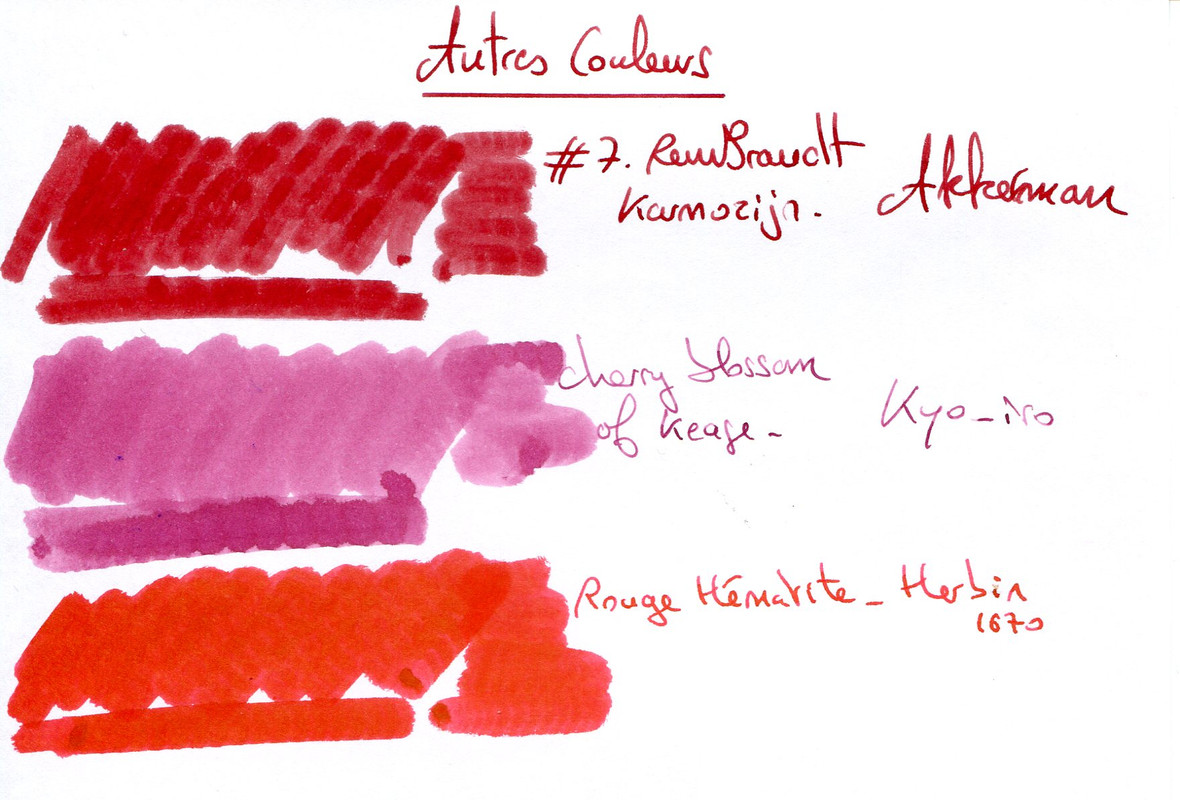 Autres Couleurs
#7. RemBrandt Akkerman
Karmozijn.
cherry blossom
of Keage - Kyo-iro
Rouge Hématite - Herbin
1670